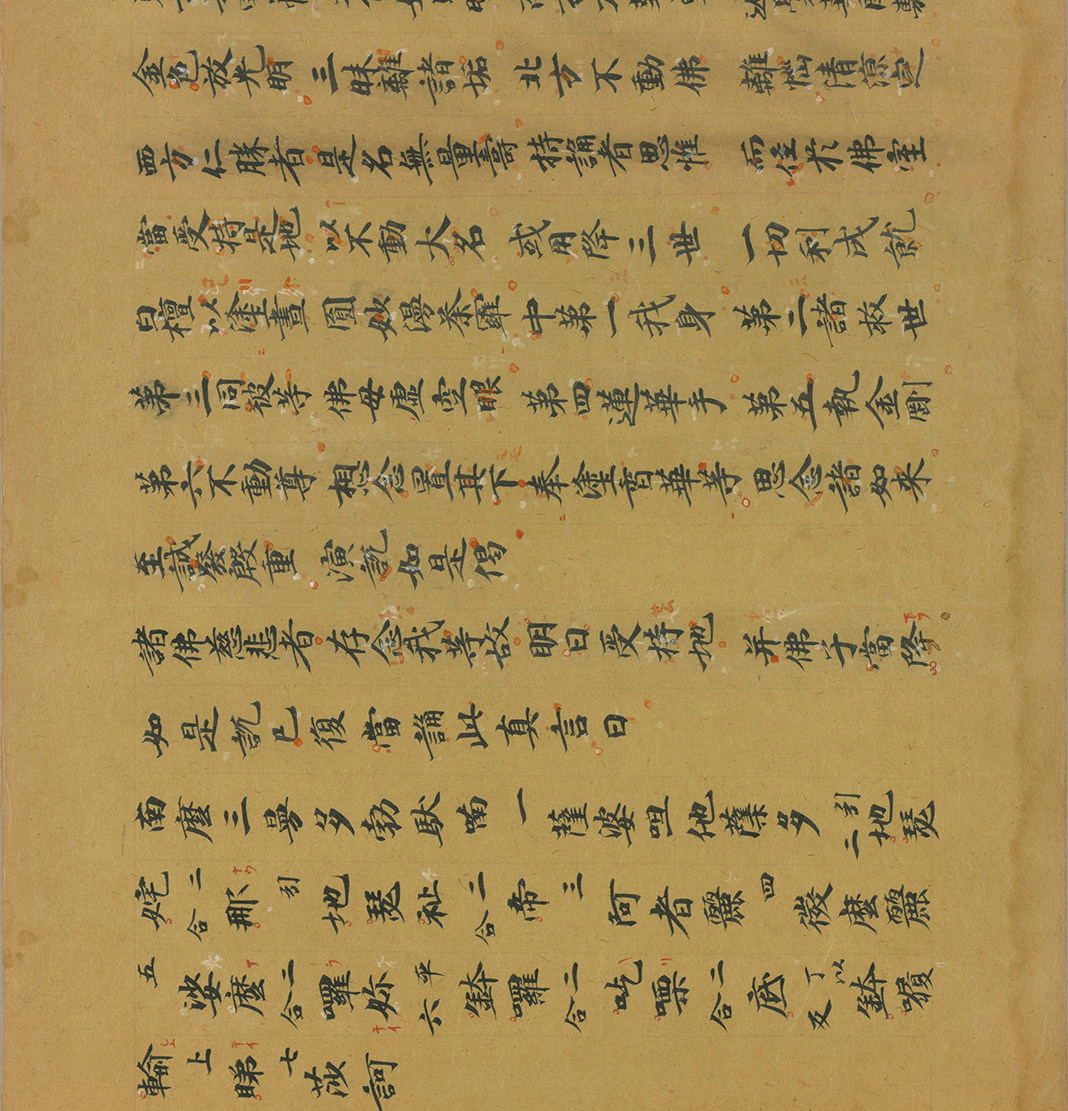 金色放光明 三昧離諸垢 北方不動佛 離惱清涼定
西方仁勝者 是名無量壽 持誦者思惟 而住於佛室
當受持是地 以不動大名 或用降三世 一切利成就
白檀以塗畫 圓妙漫荼羅 中第一我身 第二諸救世
第三同彼等 佛母虛空眼 第四蓮華手 第五執金剛
第六不動尊 想念置其下 奉塗香華等 思念諸如来
至誠發殷重 演說如是偈
諸佛慈悲者 存念我等故 明日受持地 并佛子當降
如是說已復當誦此真言曰
南麼三曼多勃馱喃一薩婆呾他蘖多引二地瑟
姹二合那引地瑟祉二合帝三阿者麗四微麼麗
五娑麼二合囉妳平六鉢囉二合吃㗚二合底丁以反鉢
輸上睇七莎訶